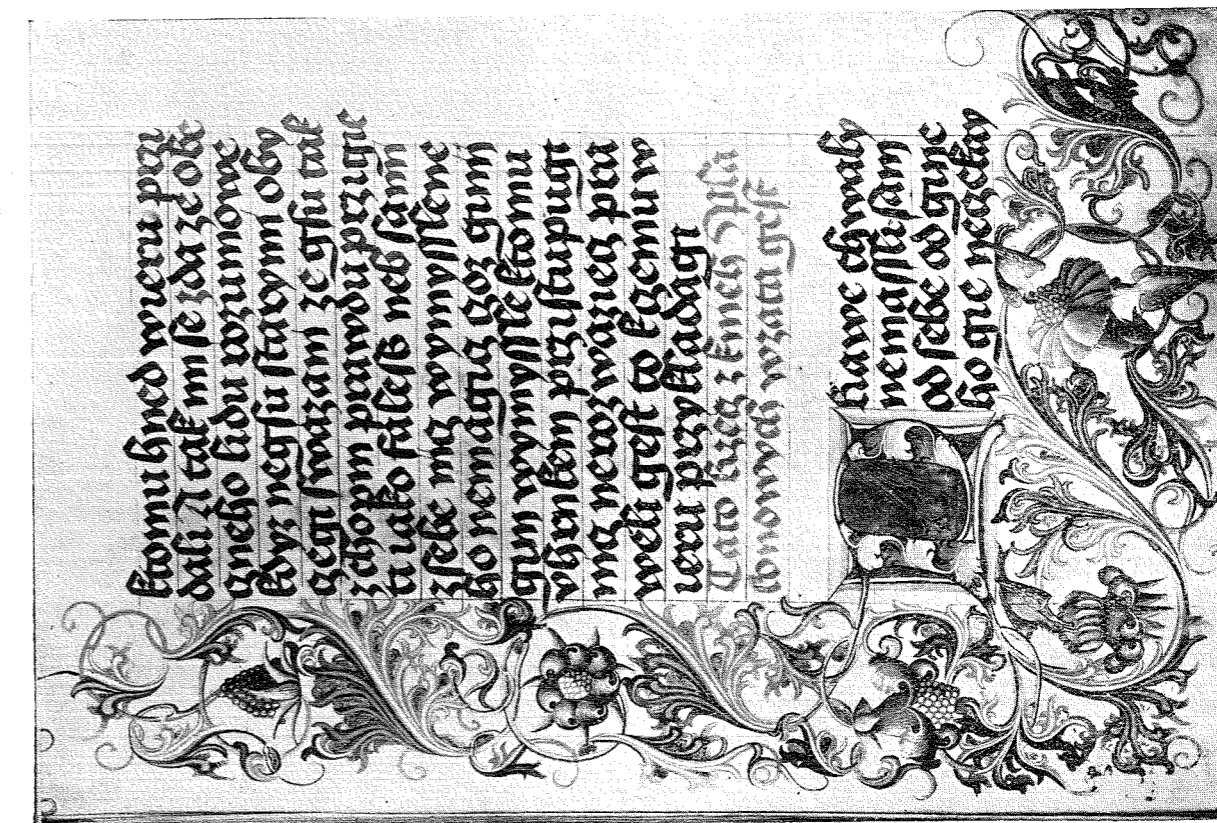 ktomu hned wieru przi
dali A tak mi se zda ze obe
czneho lidu rozumowe
kdyz negsu stawym oby
gegi swazani ze gsu tak
z chopni prawdu przigie
ti iako faless neb sami
z sebe nicz wymysslene
ho nemagicz coz ginn
gim wymyssle ktomu
vhrnkem przistupugi
nicz nerozwaziecz pra
weli gest to k czemu w
ieru przykladagi
Tato krzecz z knieh Ipsa
lonowych wzata gest
Krawe chwaly
nemassli sam
od sebe od gine
ho gie neczekay